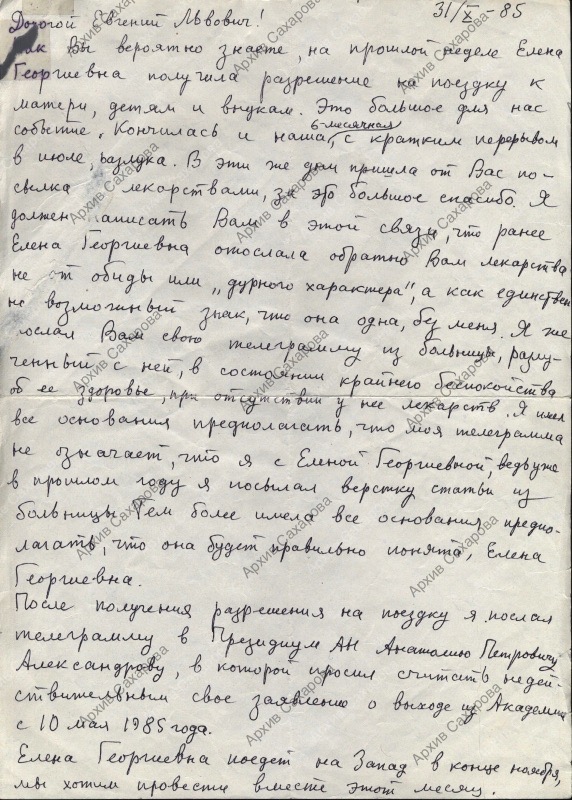 31/X-85
Дорогой Евгений Львович!
Как Вы вероятно знаете, на прошлой неделе Елена
Георгиевна получила разрешение на поездку к
матери, детям и внукам. Это большое для нас
событие. Кончилась и наша 6-месячная, с кратким перерывом
в июле, разлука. В эти же дни пришла от Вас по-
сылка с лекарствами, за это большое спасибо. Я
должен написать Вам в этой связи, что ранее
Елена Георгиевна отослала обратно Вам лекарства
не от обиды или „дурного характера", а как единствен
но возможный знак, что она одна, без меня. Я же
послал Вам свою телеграмму из больницы, разлу-
ченный с ней, в состоянии крайнего беспокойства
об ее здоровье, при отсутствии у нее лекарств. Я имел
все основания предполагать, что моя телеграмма
не означает, что я с Еленой Георгиевной, ведь уже
в прошлом году я посылал верстку статьи из
больницы. Тем более имела все основания предпо-
лагать, что она будет правильно понята, Елена
Георгиевна.
После получения разрешения на поездку я послал
телеграмму в Президиум АН Анатолию Петровичу
Александрову, в которой просил считать недей-
ствительным свое заявление о выходе из Академии
с 10 мая 1985 года.
Елена Георгиевна поедет на Запад в конце ноября,
мы хотим провести вместе этот месяц.
Архив Сахарова